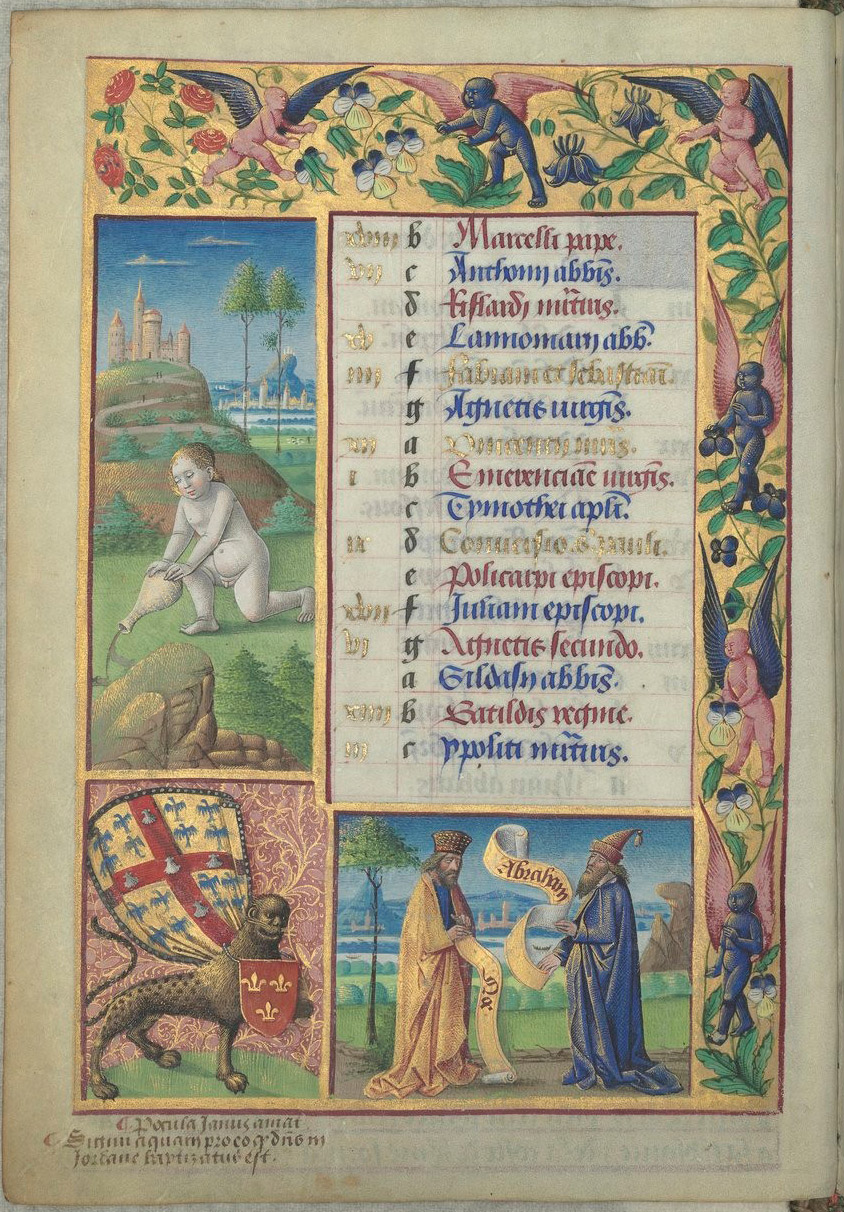 xviii b Marcelli pape.
vii c Anthonij abbis.
d Riffardi mr̃tiris.
xv e Lannomarij abb̃.
iiii f Fabiani et Sebastiani.
g Agnetis uirgĩs.
xii a Vincentij m̃ris.
i b Emerenciane uirgĩs.
c Tymothei apl̃i.
ix d Conuersio S. pauli.
e Policarpi episcopi.
xvii f Juliani episcopi.
vi g Agnetis secundo.
a Gildasij abbis.
xiiii b Batildis regine.
iii c Ypoliti mr̃tiris.
Abraham
Noe
Pocula Janus amat
Signũ aquarij pro eo qꝫ dñs in
Jordane baptizatus est.